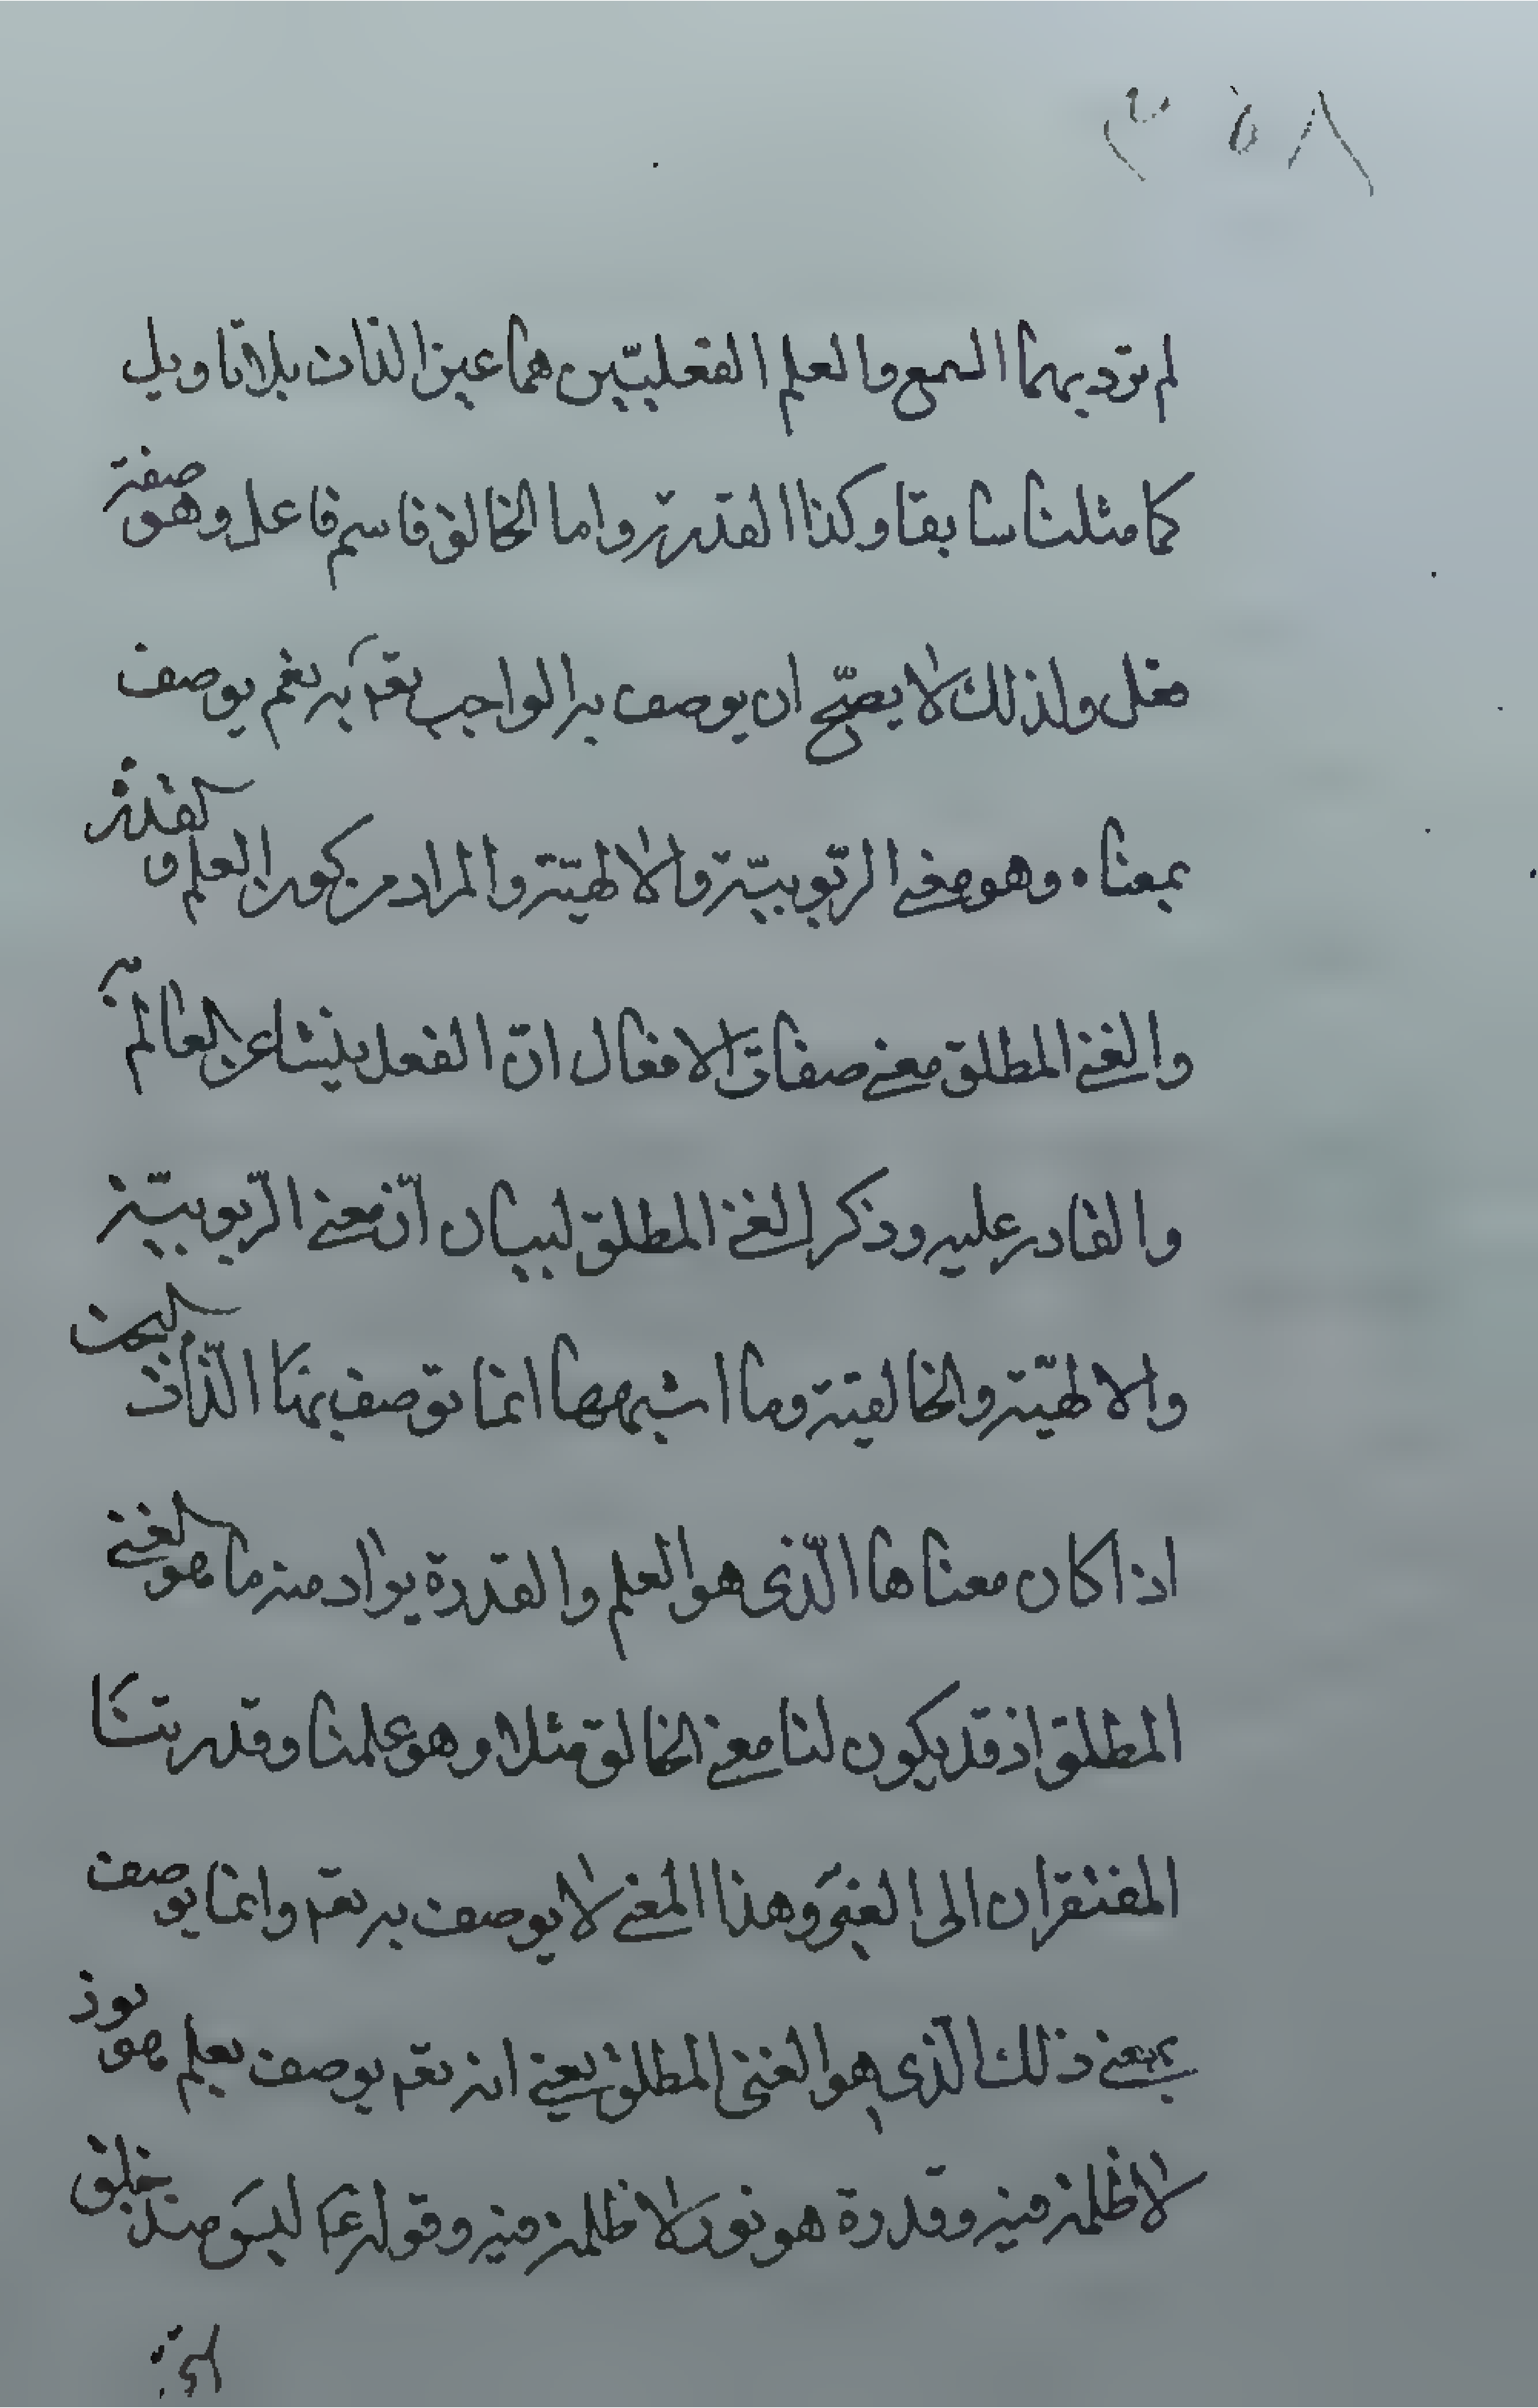 ٣٥٨
لم ترد بهما السمع والعلم الفعليّين هما عين الذات بلا تاويل
كما مثلنا سابقا وكذا القدرة واما الخالق فاسم فاعل وهو صفة
فعل ولذلك لا يصحّ ان يوصف به الواجب تعٰ به نعم يوصف
بمعناه وهو معنى الرّبوبيّة والالهيّة والمراد من كون العلم و القدرة
والغنى المطلق معنى صفات الافعال انّ الفعل ينشا عن العالم به
والقادر عليه وذكر الغنى المطلق لبيان انّ معنى الرّبوبيّة
والالهيّة والخالقية وما اشبهها انما توصف بها الذّات البحت
اذا كان معناها الّذى هو العلم والقدرة يراد منه ما هو الغنى
المطلق اذ قد يكون لنا معنى الخالق مثلا وهو علمنا وقدرتنا
المفتقران الى الغير وهذا المعنى لا يوصف به تعٰ وانما يوصف
بمعنى ذلك الّذى هو الغنى المطلق يعنى انه تعٰ يوصف بعلم هو نور
لا ظلمة فيه وقدرة هو نور لا ظلمة فيه وقوله ع ليس منذ خلق